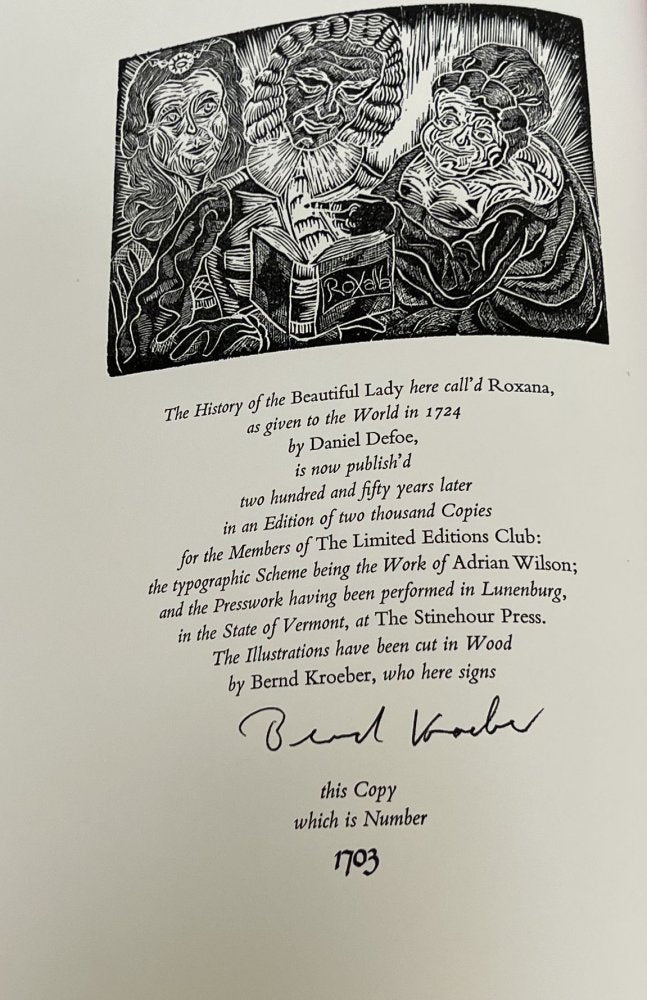 Roxana
The History of the Beautiful Lady here call'd Roxana,
as given to the World in 1724
by Daniel Defoe,
is now publish'd
two hundred and fifty years later
in an Edition of two thousand Copies
for the Members of The Limited Editions Club:
the typographic Scheme being the Work of Adrian Wilson;
and the Presswork having been performed in Lunenburg,
in the State of Vermont, at The Stinehour Press.
The Illustrations have been cut in Wood
by Bernd Kroeber, who here signs
Bernd Kroeber
this Copy
which is Number
1703